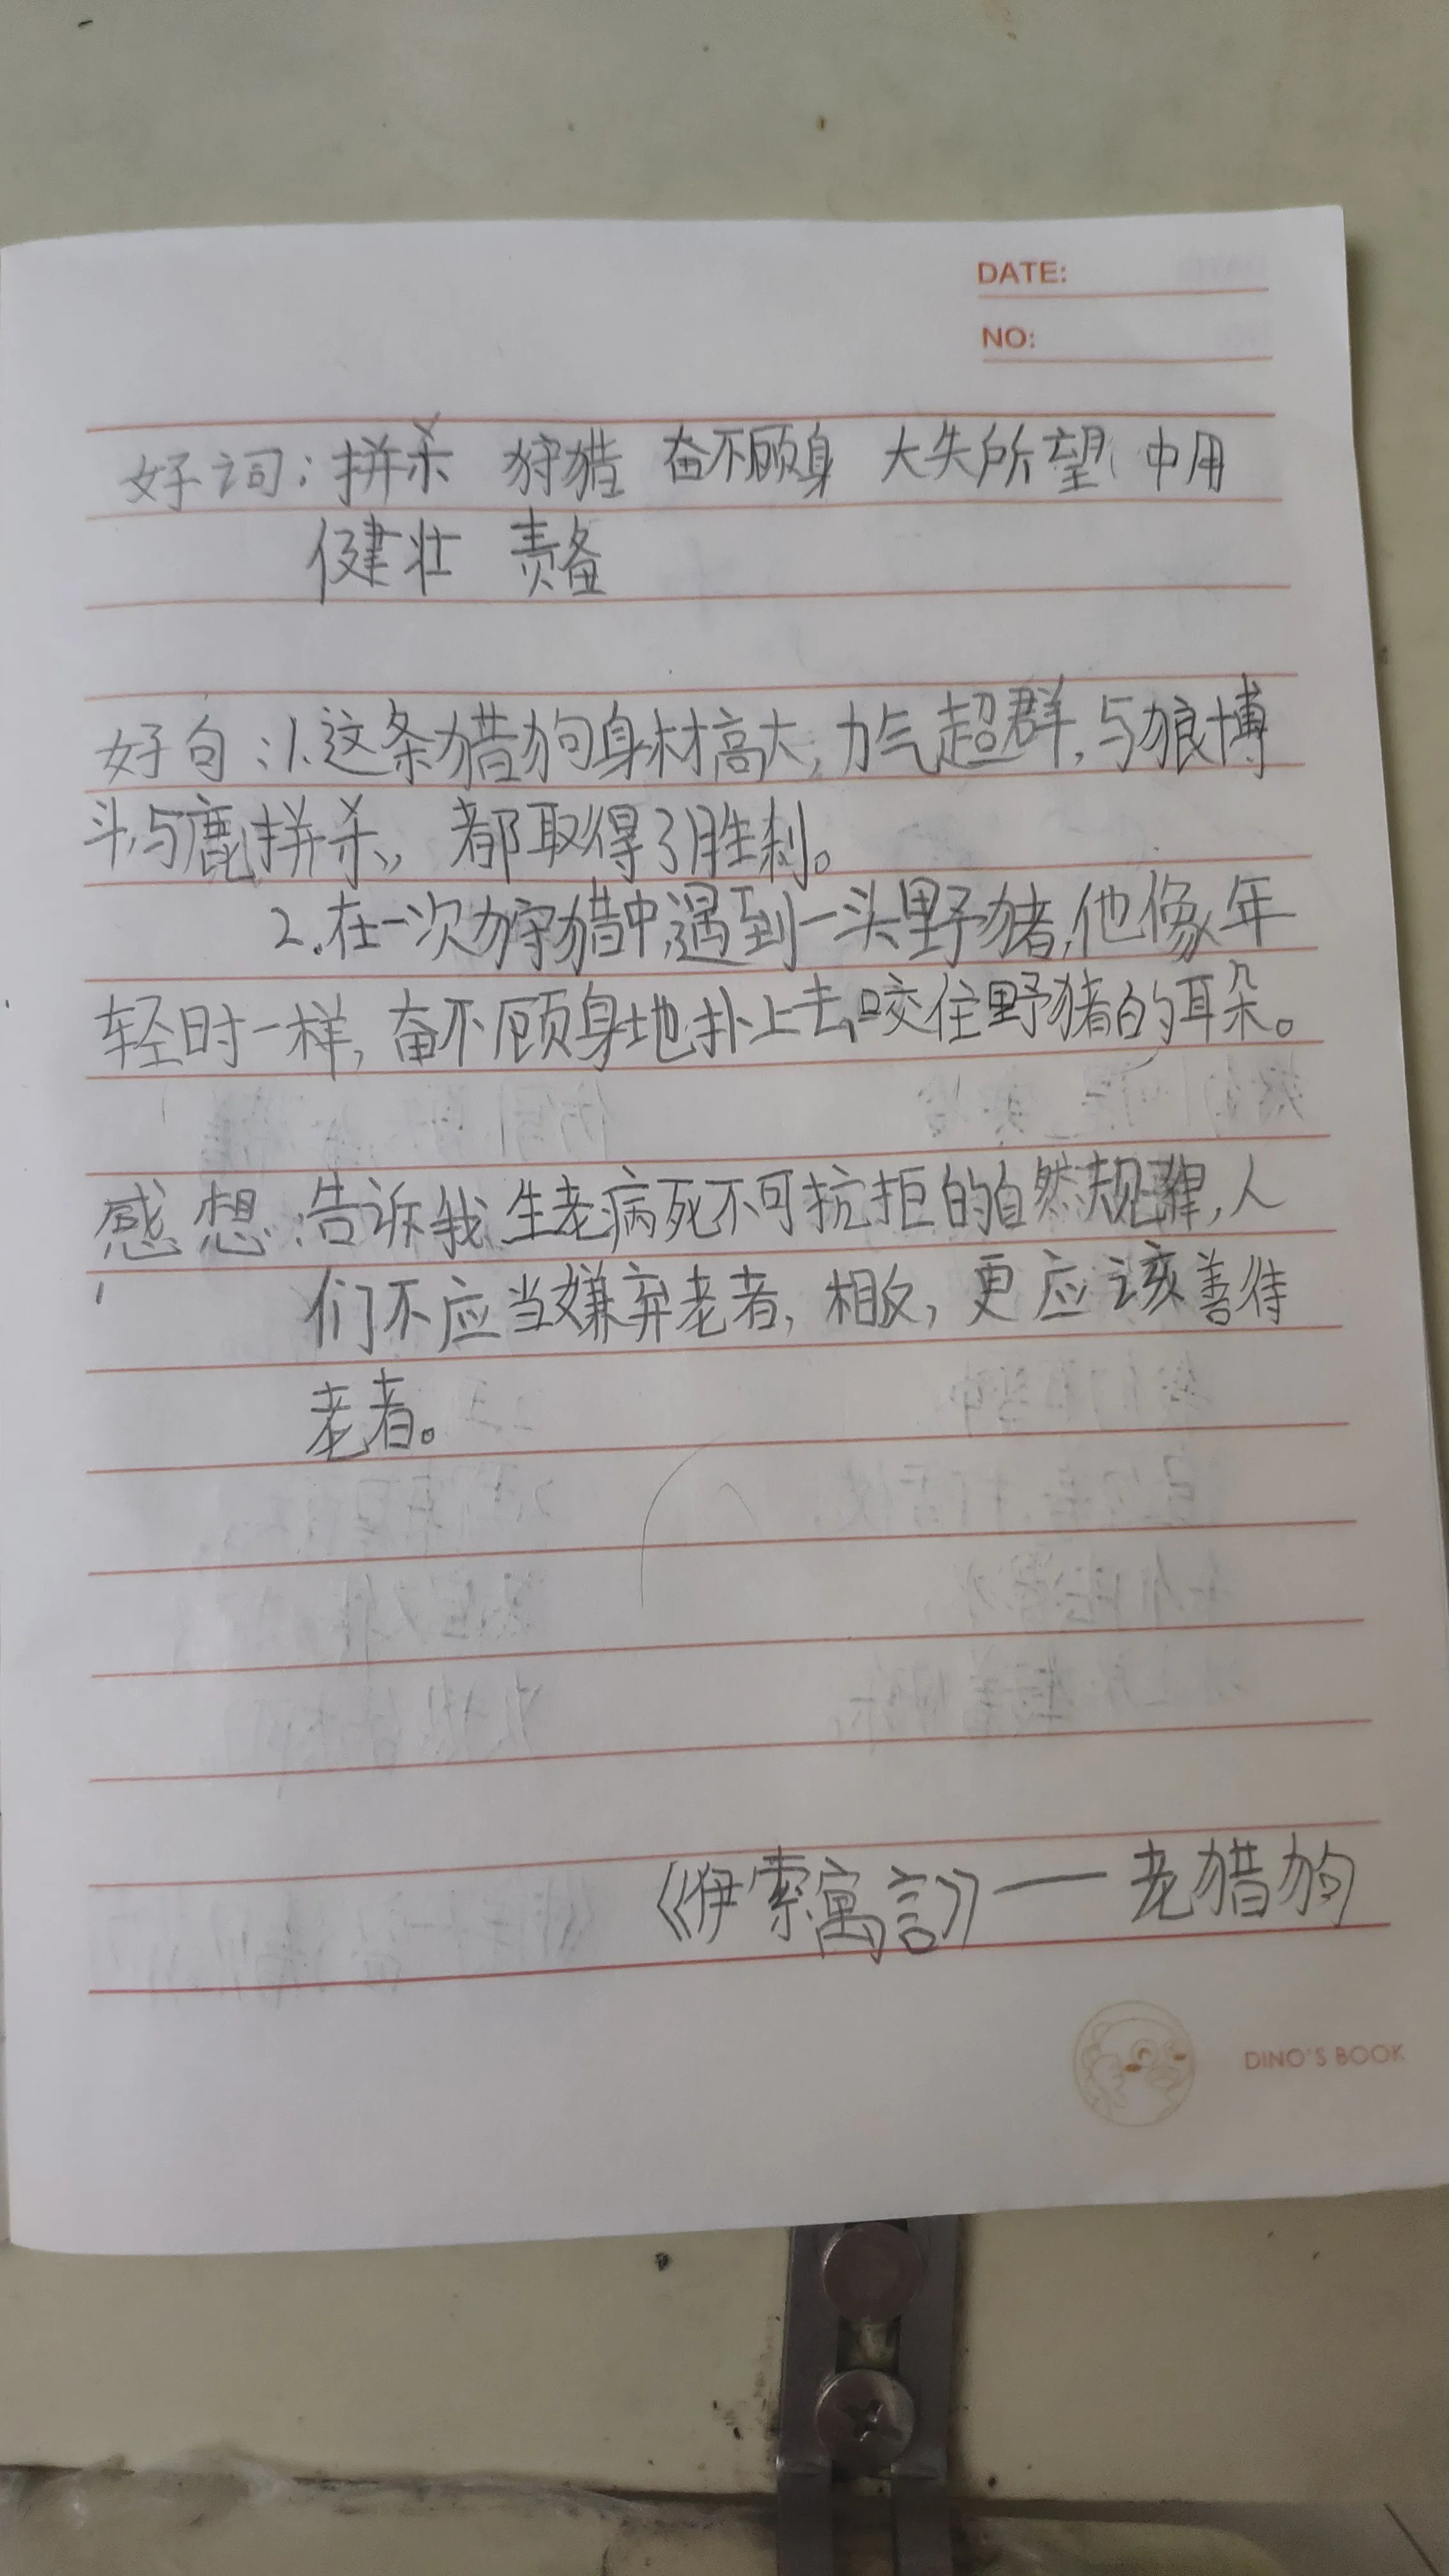 DATE:
NO:
好词：拼杀 狩猎 奋不顾身 大失所望 中用
健壮 责备
好句：1.这条猎狗身材高大，力气超群，与狼博
斗，与鹿拼杀，都取得了胜利。
2.在一次狩猎中，遇到一头野猪，他像年
轻时一样，奋不顾身地扑上去，咬住野猪的耳朵。
感想：告诉我，生老病死不可抗拒的自然规律，人
们不应当嫌弃老者，相反，更应该善待
老者。
《伊索寓言》——老猎狗
DINO'S BOOK